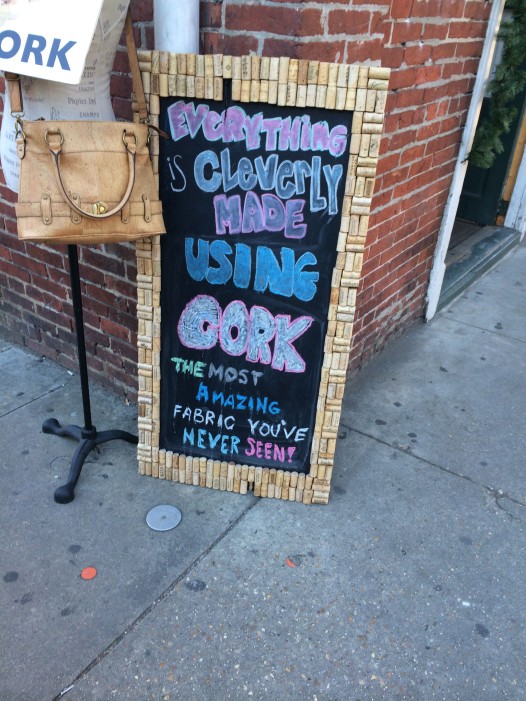 ORK
EVERYTHING
iS CLEVERLY
MADE
USING
CORK
THE MOST
AMAZING
FABRIC YOU'VE
NEVER SEEN!